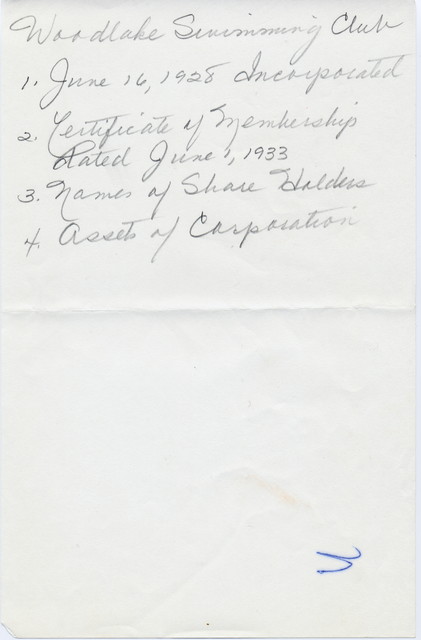 Woodlake Swimming Club
1. June 16, 1928 Incorporated
2. Certificate of Membership
Dated June 1, 1933
3. Names of Share Holders
4. Assets of Corporation